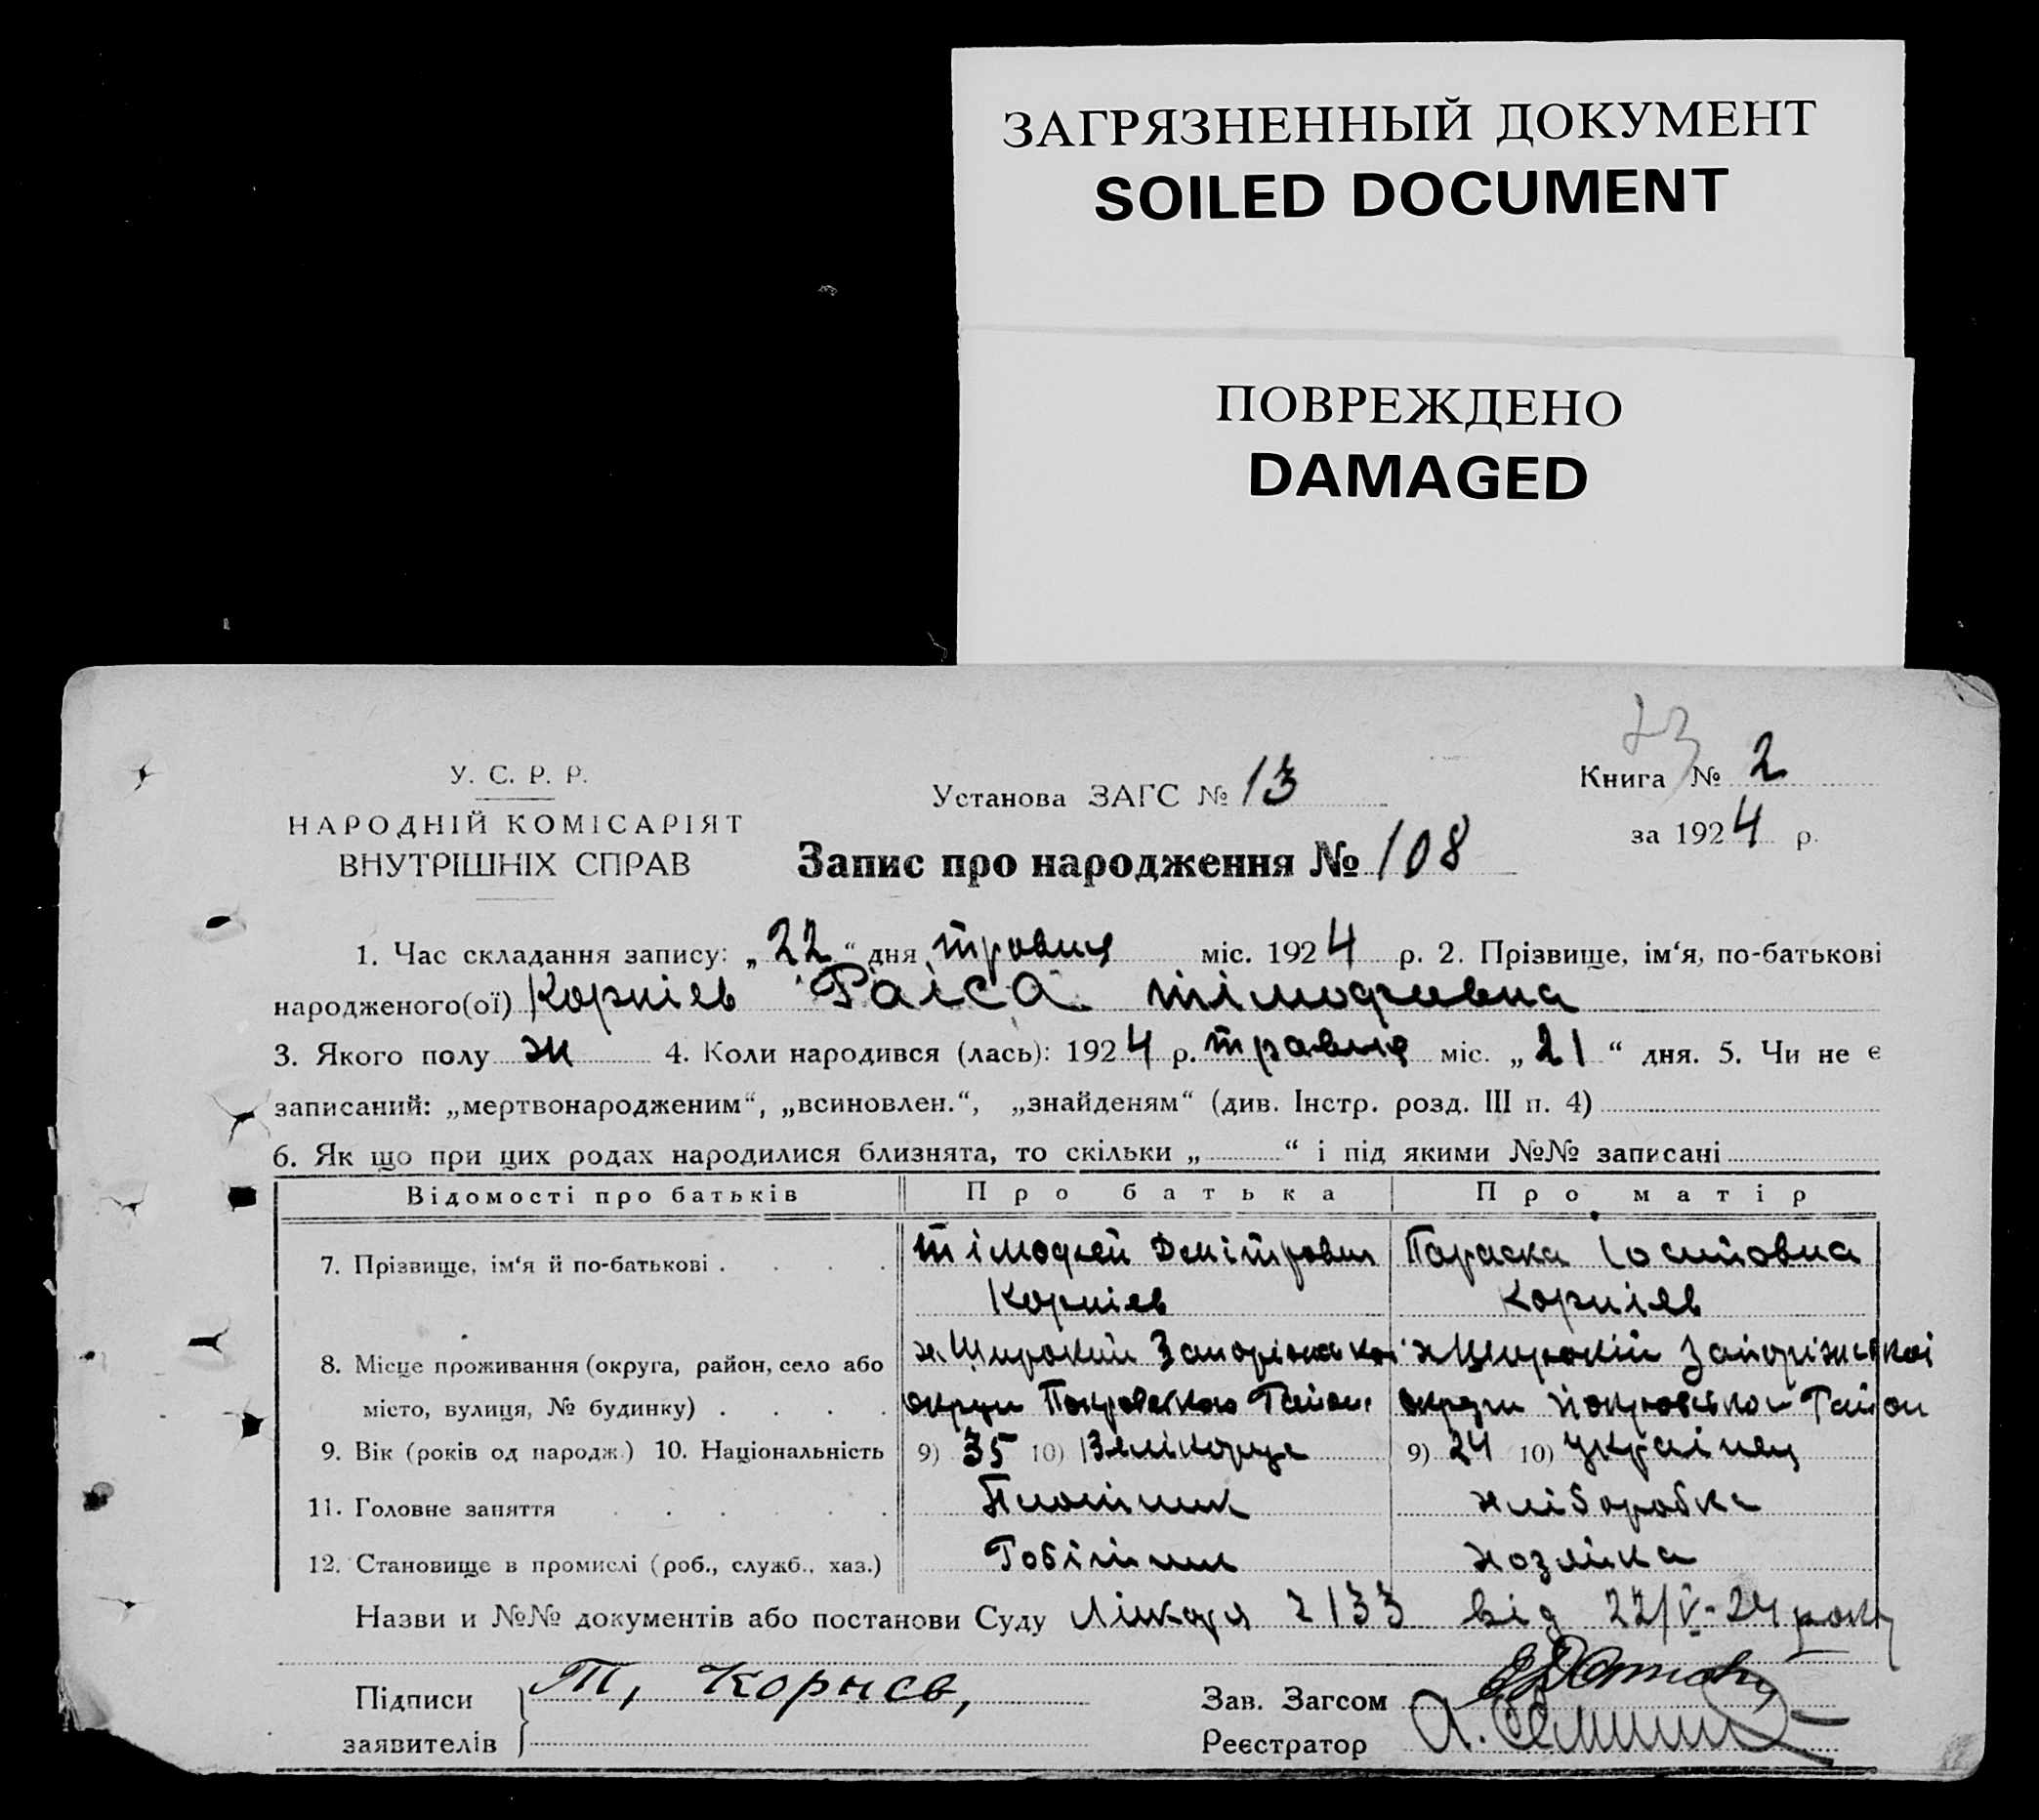 ЗАГРЯЗНЕННЫЙ ДОКУМЕНТ
SOILED DOCUMENT
ПОВРЕЖДЕНО
DAMAGED
У. С. Р. Р.
НАРОДНІЙ КОМІСАРІЯТ
ВНУТРІШНІХ СПРАВ
Установа ЗАГС № 13
23
Книга № 2
за 1924 р.
Запис про народження № 108
1. Час складання запису: „22“ дня травня міс. 1924 р. 2. Прізвище, ім‘я, по-батькові
народженого(ої) Корнієв Раіса Тімофеевна
3. Якого полу ж 4. Коли народився (лась): 1924 р. травня міс. „21“ дня. 5. Чи не є
записаний: „мертвонародженим“, „всиновлен.“, „знайденям“ (див. Інстр. розд. III п. 4)
6. Як що при цих родах народилися близнята, то скільки „ “ і під якими №№ записані
Відомості про батьків Про батька Про матір
7. Прізвище, ім‘я й по-батькові Тімофей Дмітрович Параска Іосиповна
Корнієв Корнієв
8. Місце проживання (округа, район, село або х. Широкий Запоріжскоі х Широкій Запоріжськоі
місто, вулиця, № будинку) округи Покровского Район округи Покровськог Район
9. Вік (років од народж.) 10. Національність 9) 35 10) Велікорус 9) 24 10) Украінец
11. Головне заняття Плотник хліборобка
12. Становище в промислі (роб., служб., хаз.) Робітник хозяйка
Назви и №№ документів або постанови Суду Лікаря 2133 від 22/V-24 року
Підписи
заявителів
Т, Корнев,
Зав. Загсом
Реєстратор А.